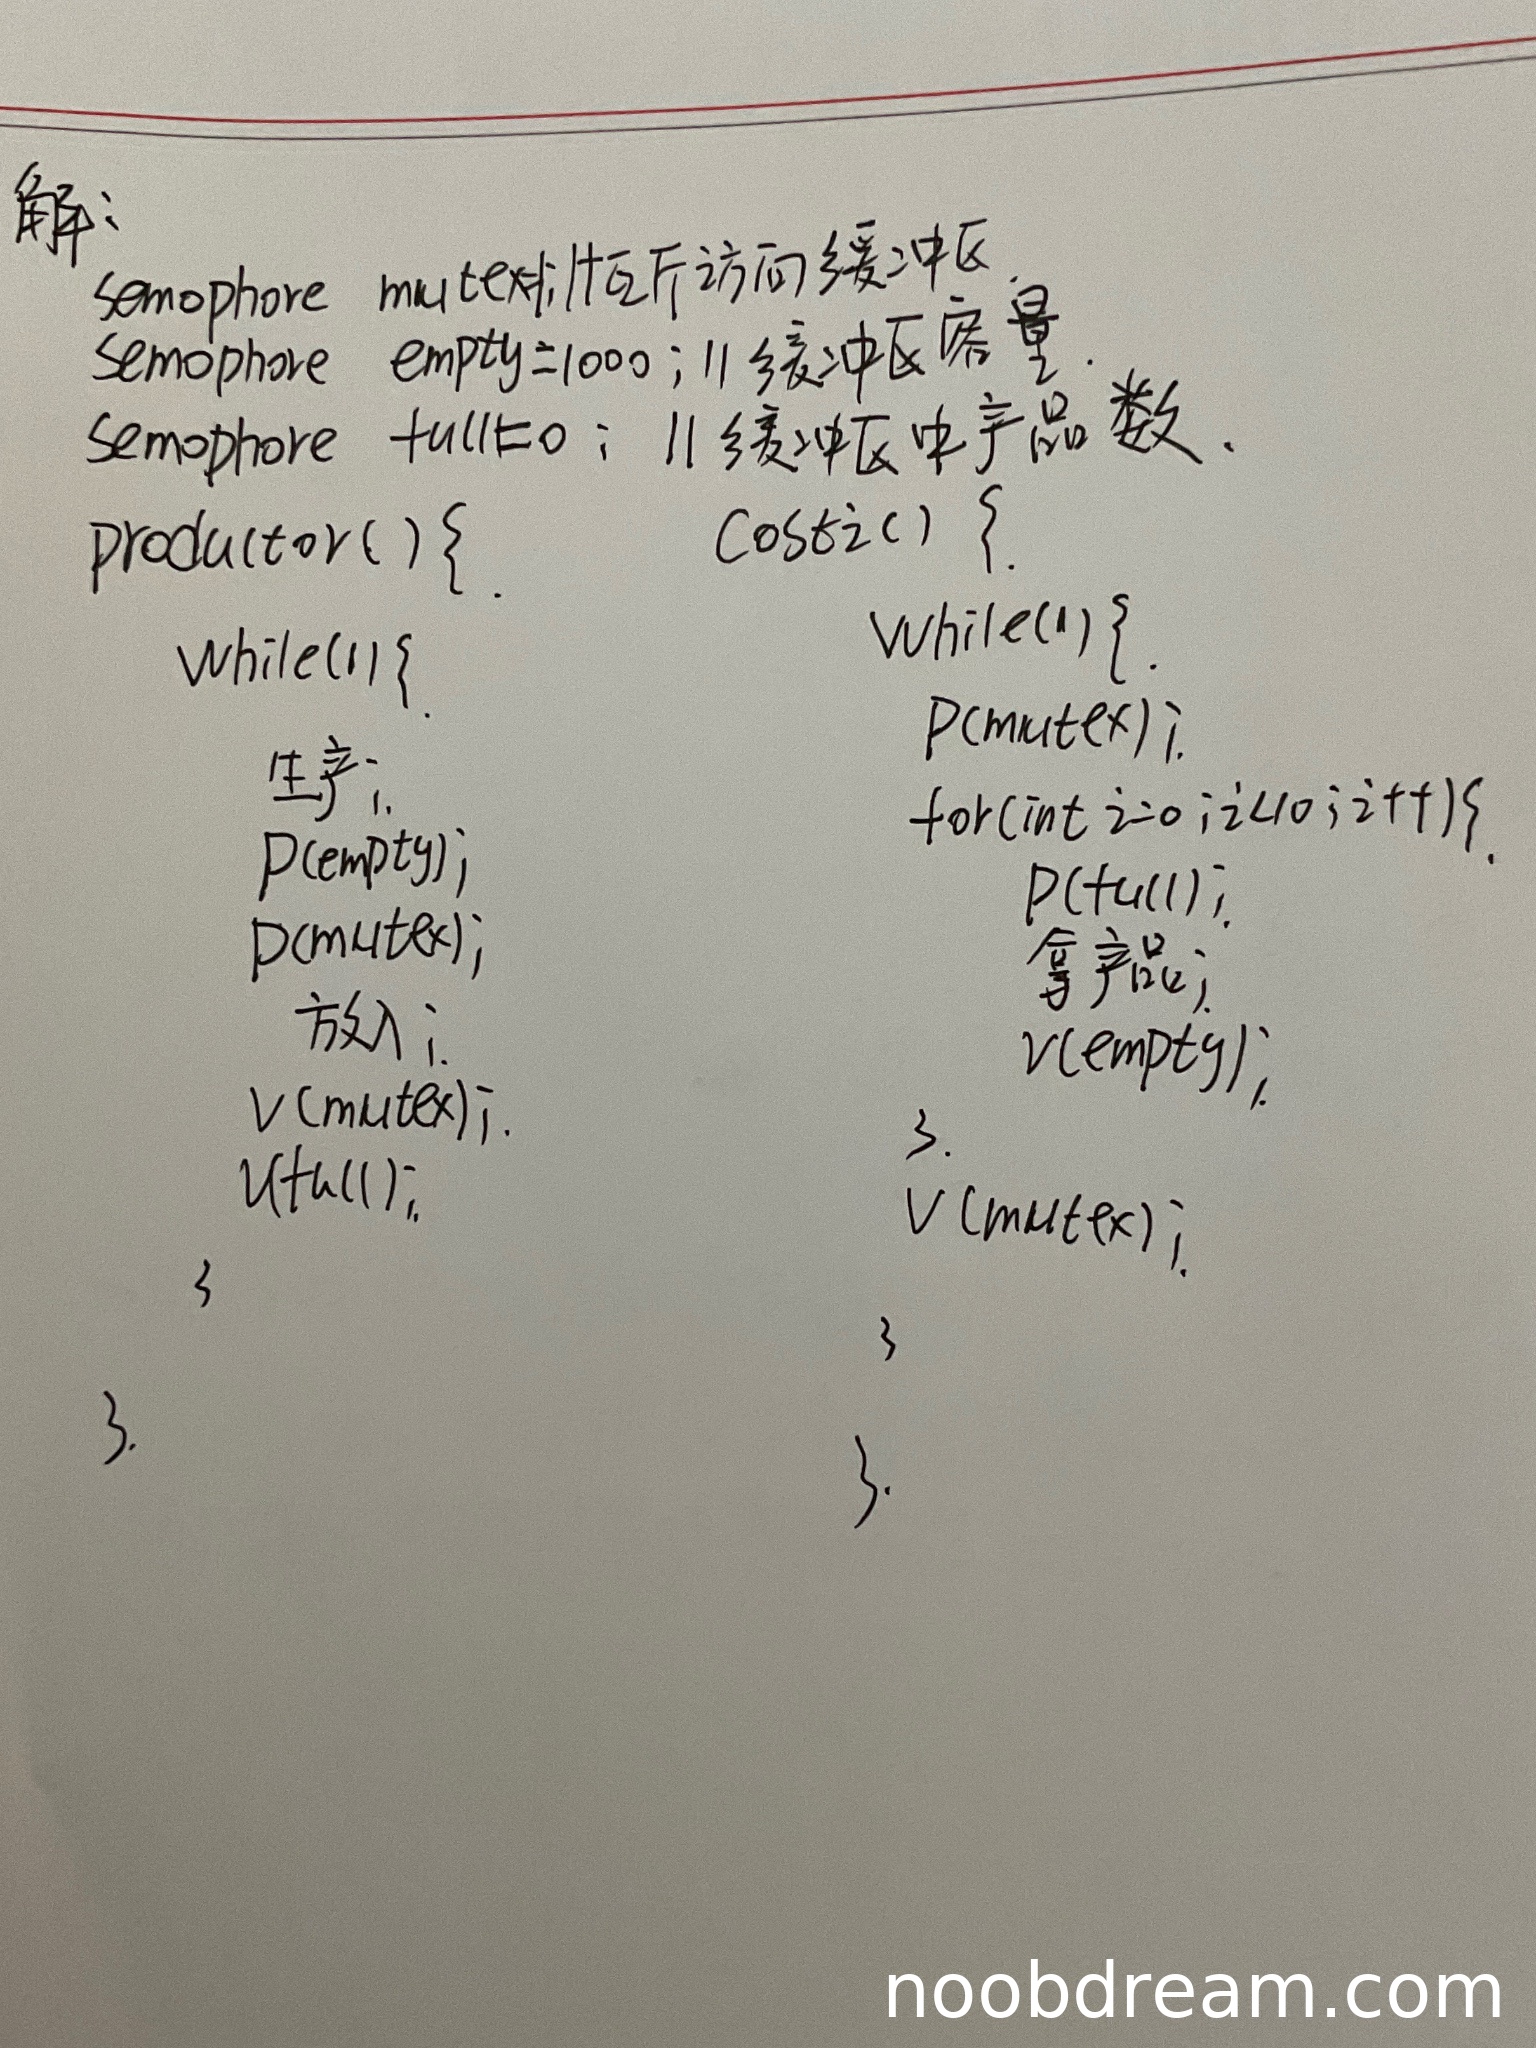 解:
semophore mutex=1;//互斥访问缓冲区.
semophore empty=1000;//缓冲区容量.
semophore full=0;//缓冲区中产品数.
productor(){.
while(1){.
生产;.
P(empty);
P(mutex);
放入;.
V(mutex);.
V(full);.
}
}.
Costi() {.
while(1){.
P(mutex);.
for(int i=0;i<10;i++){.
P(full);.
拿产品;.
V(empty);.
}.
V(mutex);.
}
}.
noobdream.com